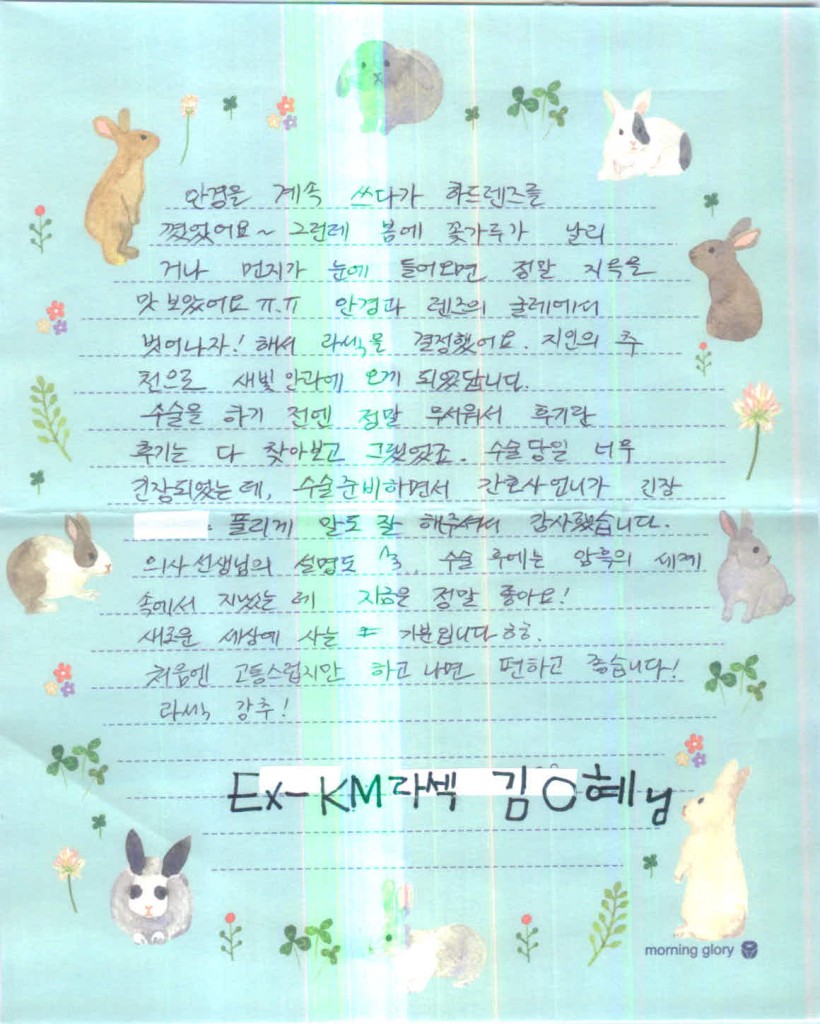 안경을 계속 쓰다가 하드렌즈를
꼈었어요~ 그런데 봄에 꽃가루가 날리
거나 먼지가 눈에 들어오면 정말 지옥을
맛보았어요 ㅠ.ㅠ 안경과 렌즈의 굴레에서
벗어나자! 해서 라식을 결정했어요. 지인의 추
천으로 새빛안과에 오게 되었답니다.
수술을 하기 전엔 정말 무서워서 후기란
후기는 다 찾아보고 그랬었죠. 수술당일 너무
긴장되었는데, 수술준비하면서 간호사언니가 긴장
풀리게 말도 잘 해주셔서 감사했습니다.
의사선생님의 설명도 수술 후에는 암흑의 세계
속에서 지냈는데 지금은 정말 좋아요!
새로운 세상에 사는 기분입니다 ㅎㅎ.
처음엔 고통스럽지만 하고나면 편하고 좋습니다!
라식 강추!
Ex-KM라섹 김O혜님
morning glory